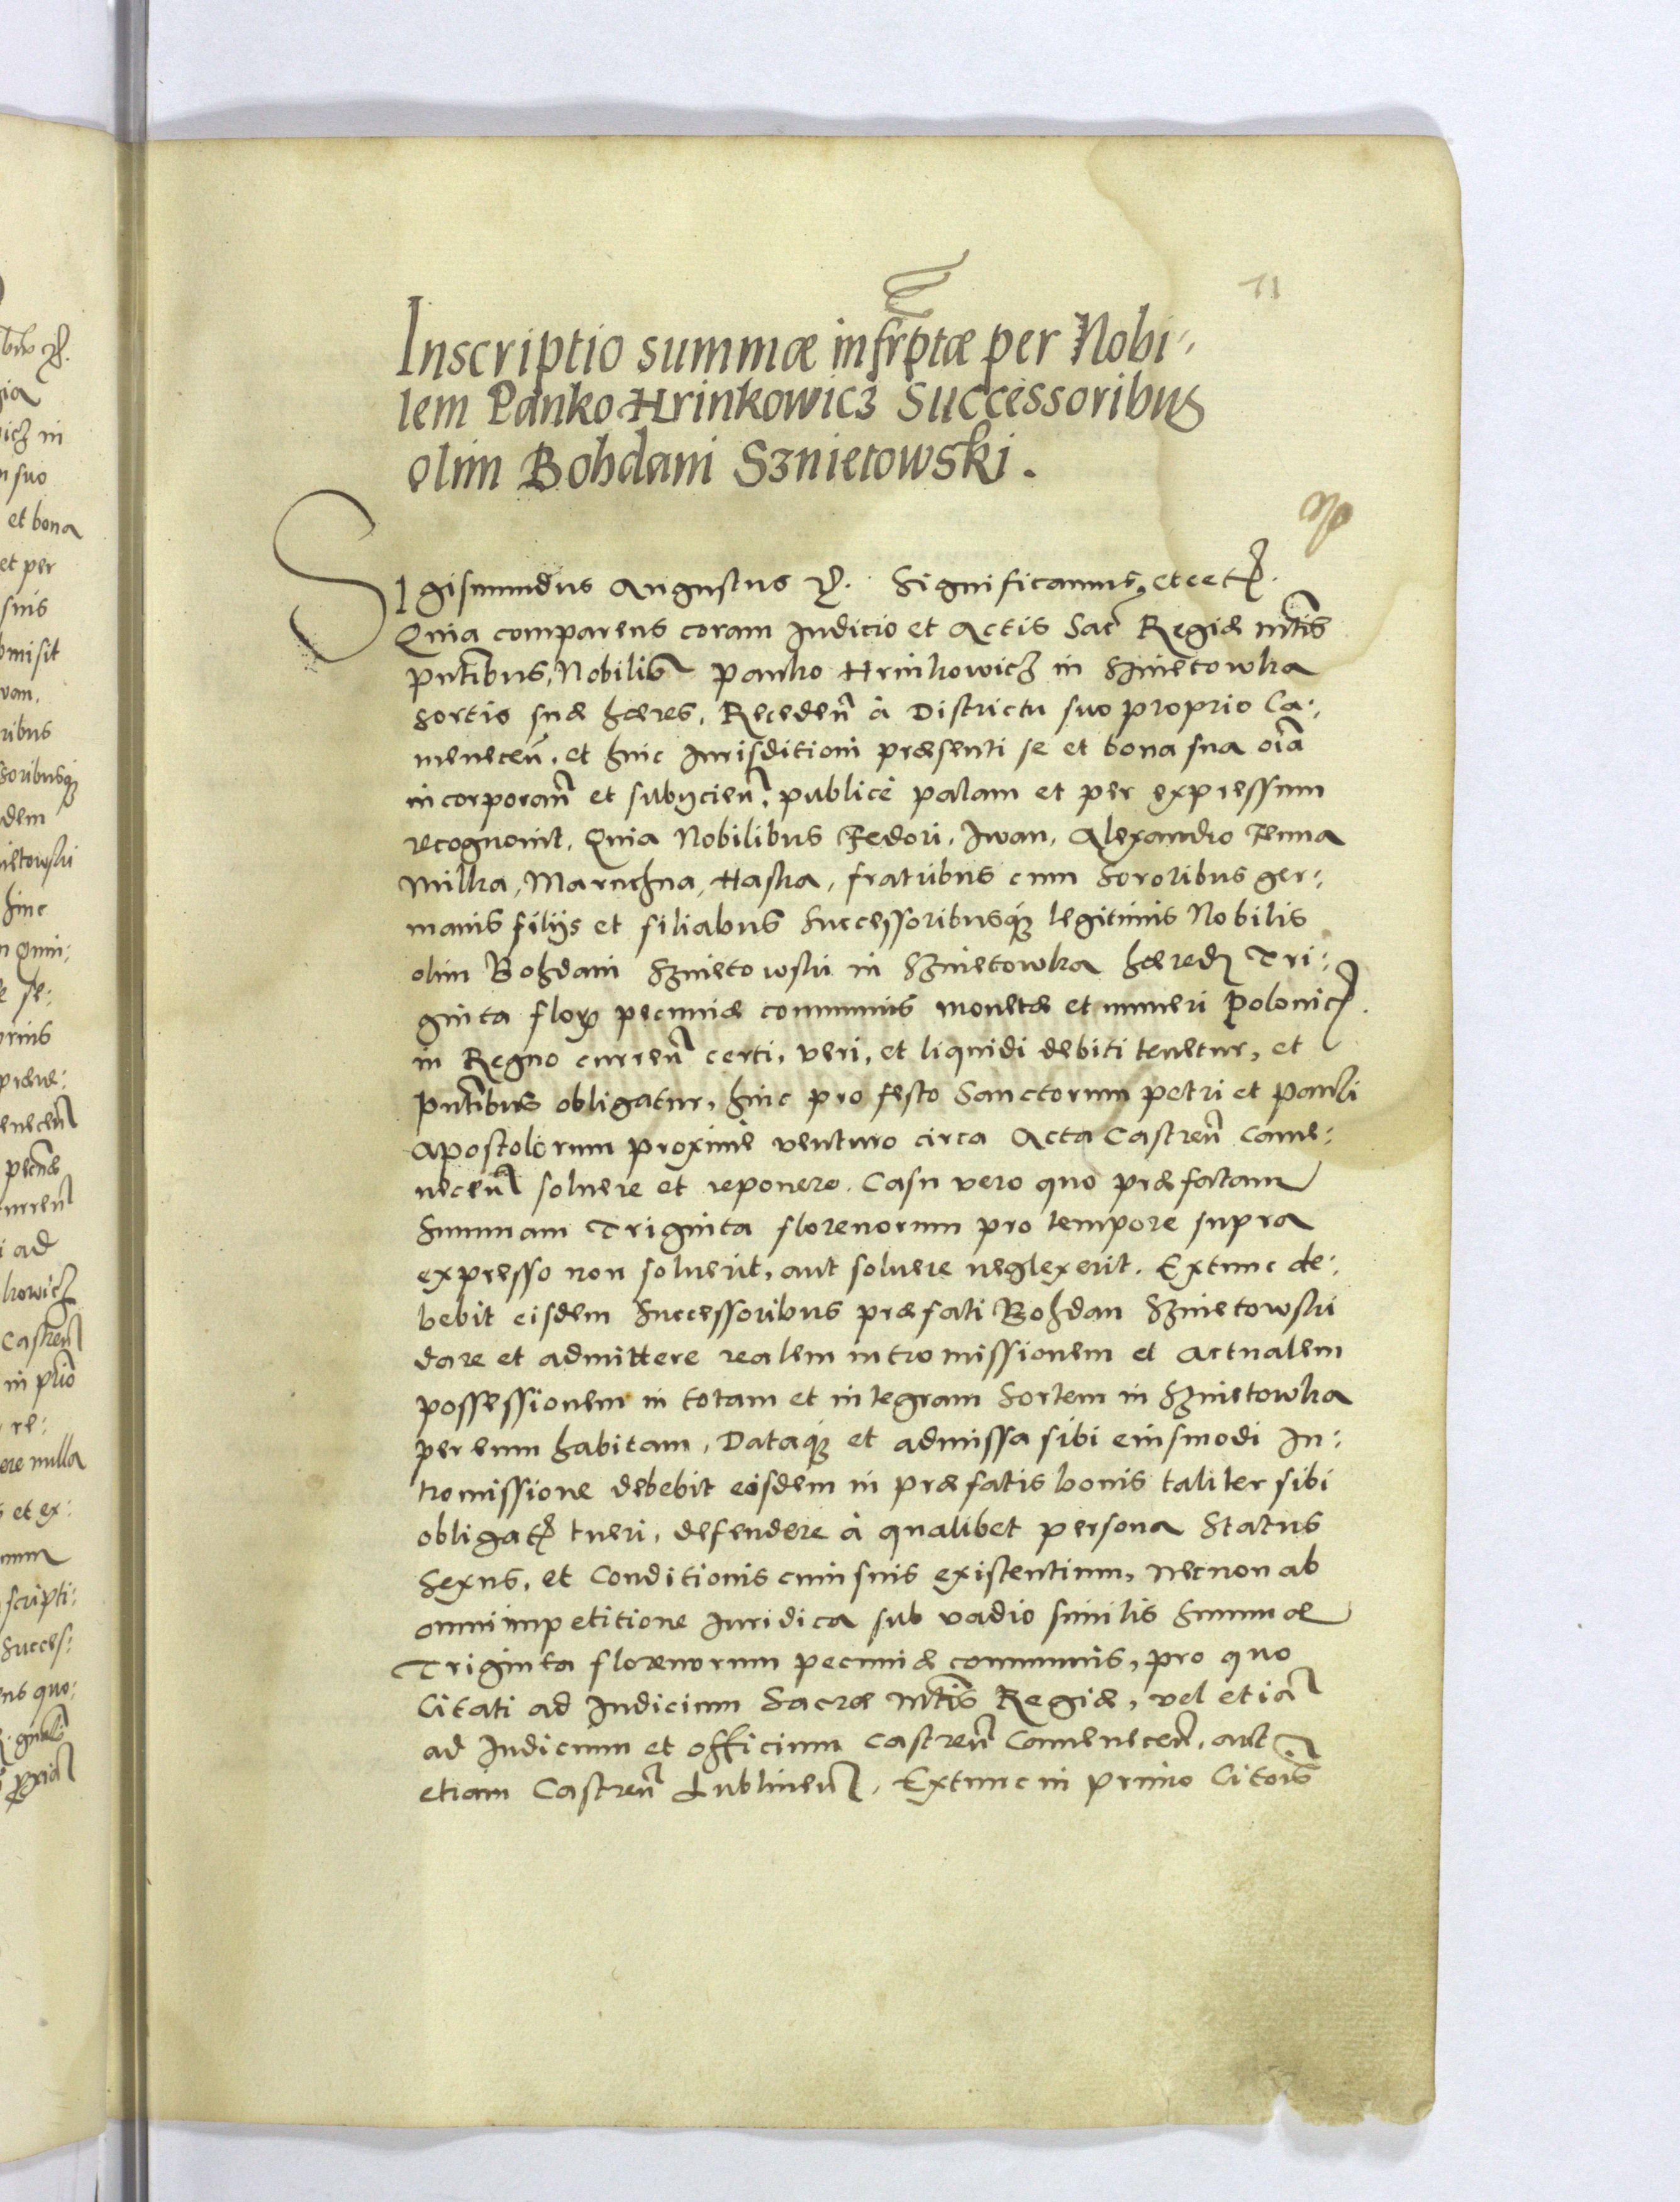 71
Inscriptio summæ infrptæ per Nobi:
lem Panko Hrinkowicz Successoribus
olim Bohdani Sznietowski.
Sigismundus Augustus &. Significamus, etcet.
Quia comparens coram Iudicio et Actis Sac Regiæ mtis
pntibus, Nobilis Panko Hrinkowicz in Sznietowka
sortis suæ hæres, Receden à Districtu suo proprio Ca:
menecen, et huic Iurisditioni præsenti se et bona sua oia
incorporan et subÿcien, publicè palam et per expressum
recognouit, Quia Nobilibus Fedori, Iwan, Alexandro Fenna
Milka, Maruchna, Haska, fratribus cum Sororibus ger:
manis filijs et filiabus Successoribusq legitimis Nobilis
olim Bohdani Sznietowski in Sznietowka hæred Tri:
ginta flor pecuniæ communis monetæ et numeri Polonic.
in Regno curren certi, veri, et liquidi debiti tenetur, et
pntibus obligatur, huic pro festo Sanctorum Petri et Pauli
Apostolorum proximè venturo circa Acta Castren Came:
necen soluere et reponere. Casu vero quo præfatam
Summam Triginta florenorum pro tempore supra
expresso non soluerit, aut soluere neglexerit. Extunc de:
bebit eisdem Successoribus præfati Bohdan Sznietowski
dare et admittere realem intromissionem et actualem
possessionem in totam et integram Sortem in Sznietowka
per eum habitam, Dataq et admissa sibi eiusmodi In:
tromissione debebit eisdem in præfatis bonis taliter sibi
obligat tueri, defendere à qualibet persona Status
Sexus, et Conditionis cuiusuis existentium, necnon ab
omni impetitione Iuridica sub vadio similis Summæ
Triginta florenorum pecuniæ communis, pro quo
Citati ad Iudicium Sacræ Mtis Regiæ, vel etia
ad Iudicium et officium Castren Camenecen, aut
etiam Castren Lublinen, Extunc in primo Citois